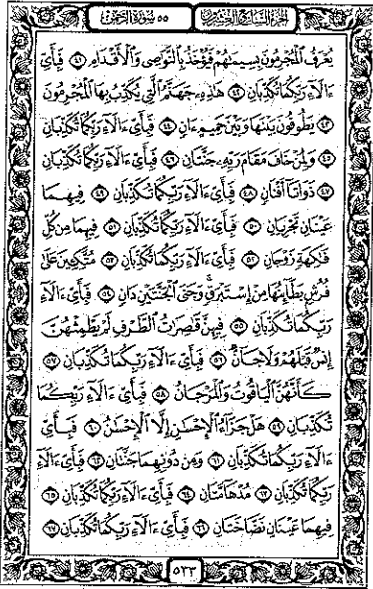 الجزء السابع والعشرون ٥٥ سورة الرحمن
يُعْرَفُ ٱلْمُجْرِمُونَ بِسِيمَـٰهُمْ فَيُؤْخَذُ بِٱلنَّوَٰصِى وَٱلْأَقْدَامِ ٤١ فَبِأَىِّ
ءَالَآءِ رَبِّكُمَا تُكَذِّبَانِ ٤٢ هَـٰذِهِۦ جَهَنَّمُ ٱلَّتِى يُكَذِّبُ بِهَا ٱلْمُجْرِمُونَ
٤٣ يَطُوفُونَ بَيْنَهَا وَبَيْنَ حَمِيمٍ ءَانٍ ٤٤ فَبِأَىِّ ءَالَآءِ رَبِّكُمَا تُكَذِّبَانِ
٤٥ وَلِمَنْ خَافَ مَقَامَ رَبِّهِۦ جَنَّتَانِ ٤٦ فَبِأَىِّ ءَالَآءِ رَبِّكُمَا تُكَذِّبَانِ
٤٧ ذَوَاتَآ أَفْنَانٍ ٤٨ فَبِأَىِّ ءَالَآءِ رَبِّكُمَا تُكَذِّبَانِ ٤٩ فِيهِمَا
عَيْنَانِ تَجْرِيَانِ ٥٠ فَبِأَىِّ ءَالَآءِ رَبِّكُمَا تُكَذِّبَانِ ٥١ فِيهِمَا مِن كُلِّ
فَـٰكِهَةٍ زَوْجَانِ ٥٢ فَبِأَىِّ ءَالَآءِ رَبِّكُمَا تُكَذِّبَانِ ٥٣ مُتَّكِـِٔينَ عَلَىٰ
فُرُشٍۭ بَطَآئِنُهَا مِنْ إِسْتَبْرَقٍ ۚ وَجَنَى ٱلْجَنَّتَيْنِ دَانٍ ٥٤ فَبِأَىِّ ءَالَآءِ
رَبِّكُمَا تُكَذِّبَانِ ٥٥ فِيهِنَّ قَـٰصِرَٰتُ ٱلطَّرْفِ لَمْ يَطْمِثْهُنَّ
إِنسٌ قَبْلَهُمْ وَلَا جَآنٌّ ٥٦ فَبِأَىِّ ءَالَآءِ رَبِّكُمَا تُكَذِّبَانِ ٥٧
كَأَنَّهُنَّ ٱلْيَاقُوتُ وَٱلْمَرْجَانُ ٥٨ فَبِأَىِّ ءَالَآءِ رَبِّكُمَا
تُكَذِّبَانِ ٥٩ هَلْ جَزَآءُ ٱلْإِحْسَـٰنِ إِلَّا ٱلْإِحْسَـٰنُ ٦٠ فَبِأَىِّ
ءَالَآءِ رَبِّكُمَا تُكَذِّبَانِ ٦١ وَمِن دُونِهِمَا جَنَّتَانِ ٦٢ فَبِأَىِّ ءَالَآءِ
رَبِّكُمَا تُكَذِّبَانِ ٦٣ مُدْهَآمَّتَانِ ٦٤ فَبِأَىِّ ءَالَآءِ رَبِّكُمَا تُكَذِّبَانِ ٦٥
فِيهِمَا عَيْنَانِ نَضَّاخَتَانِ ٦٦ فَبِأَىِّ ءَالَآءِ رَبِّكُمَا تُكَذِّبَانِ ٦٧
٥٣٣